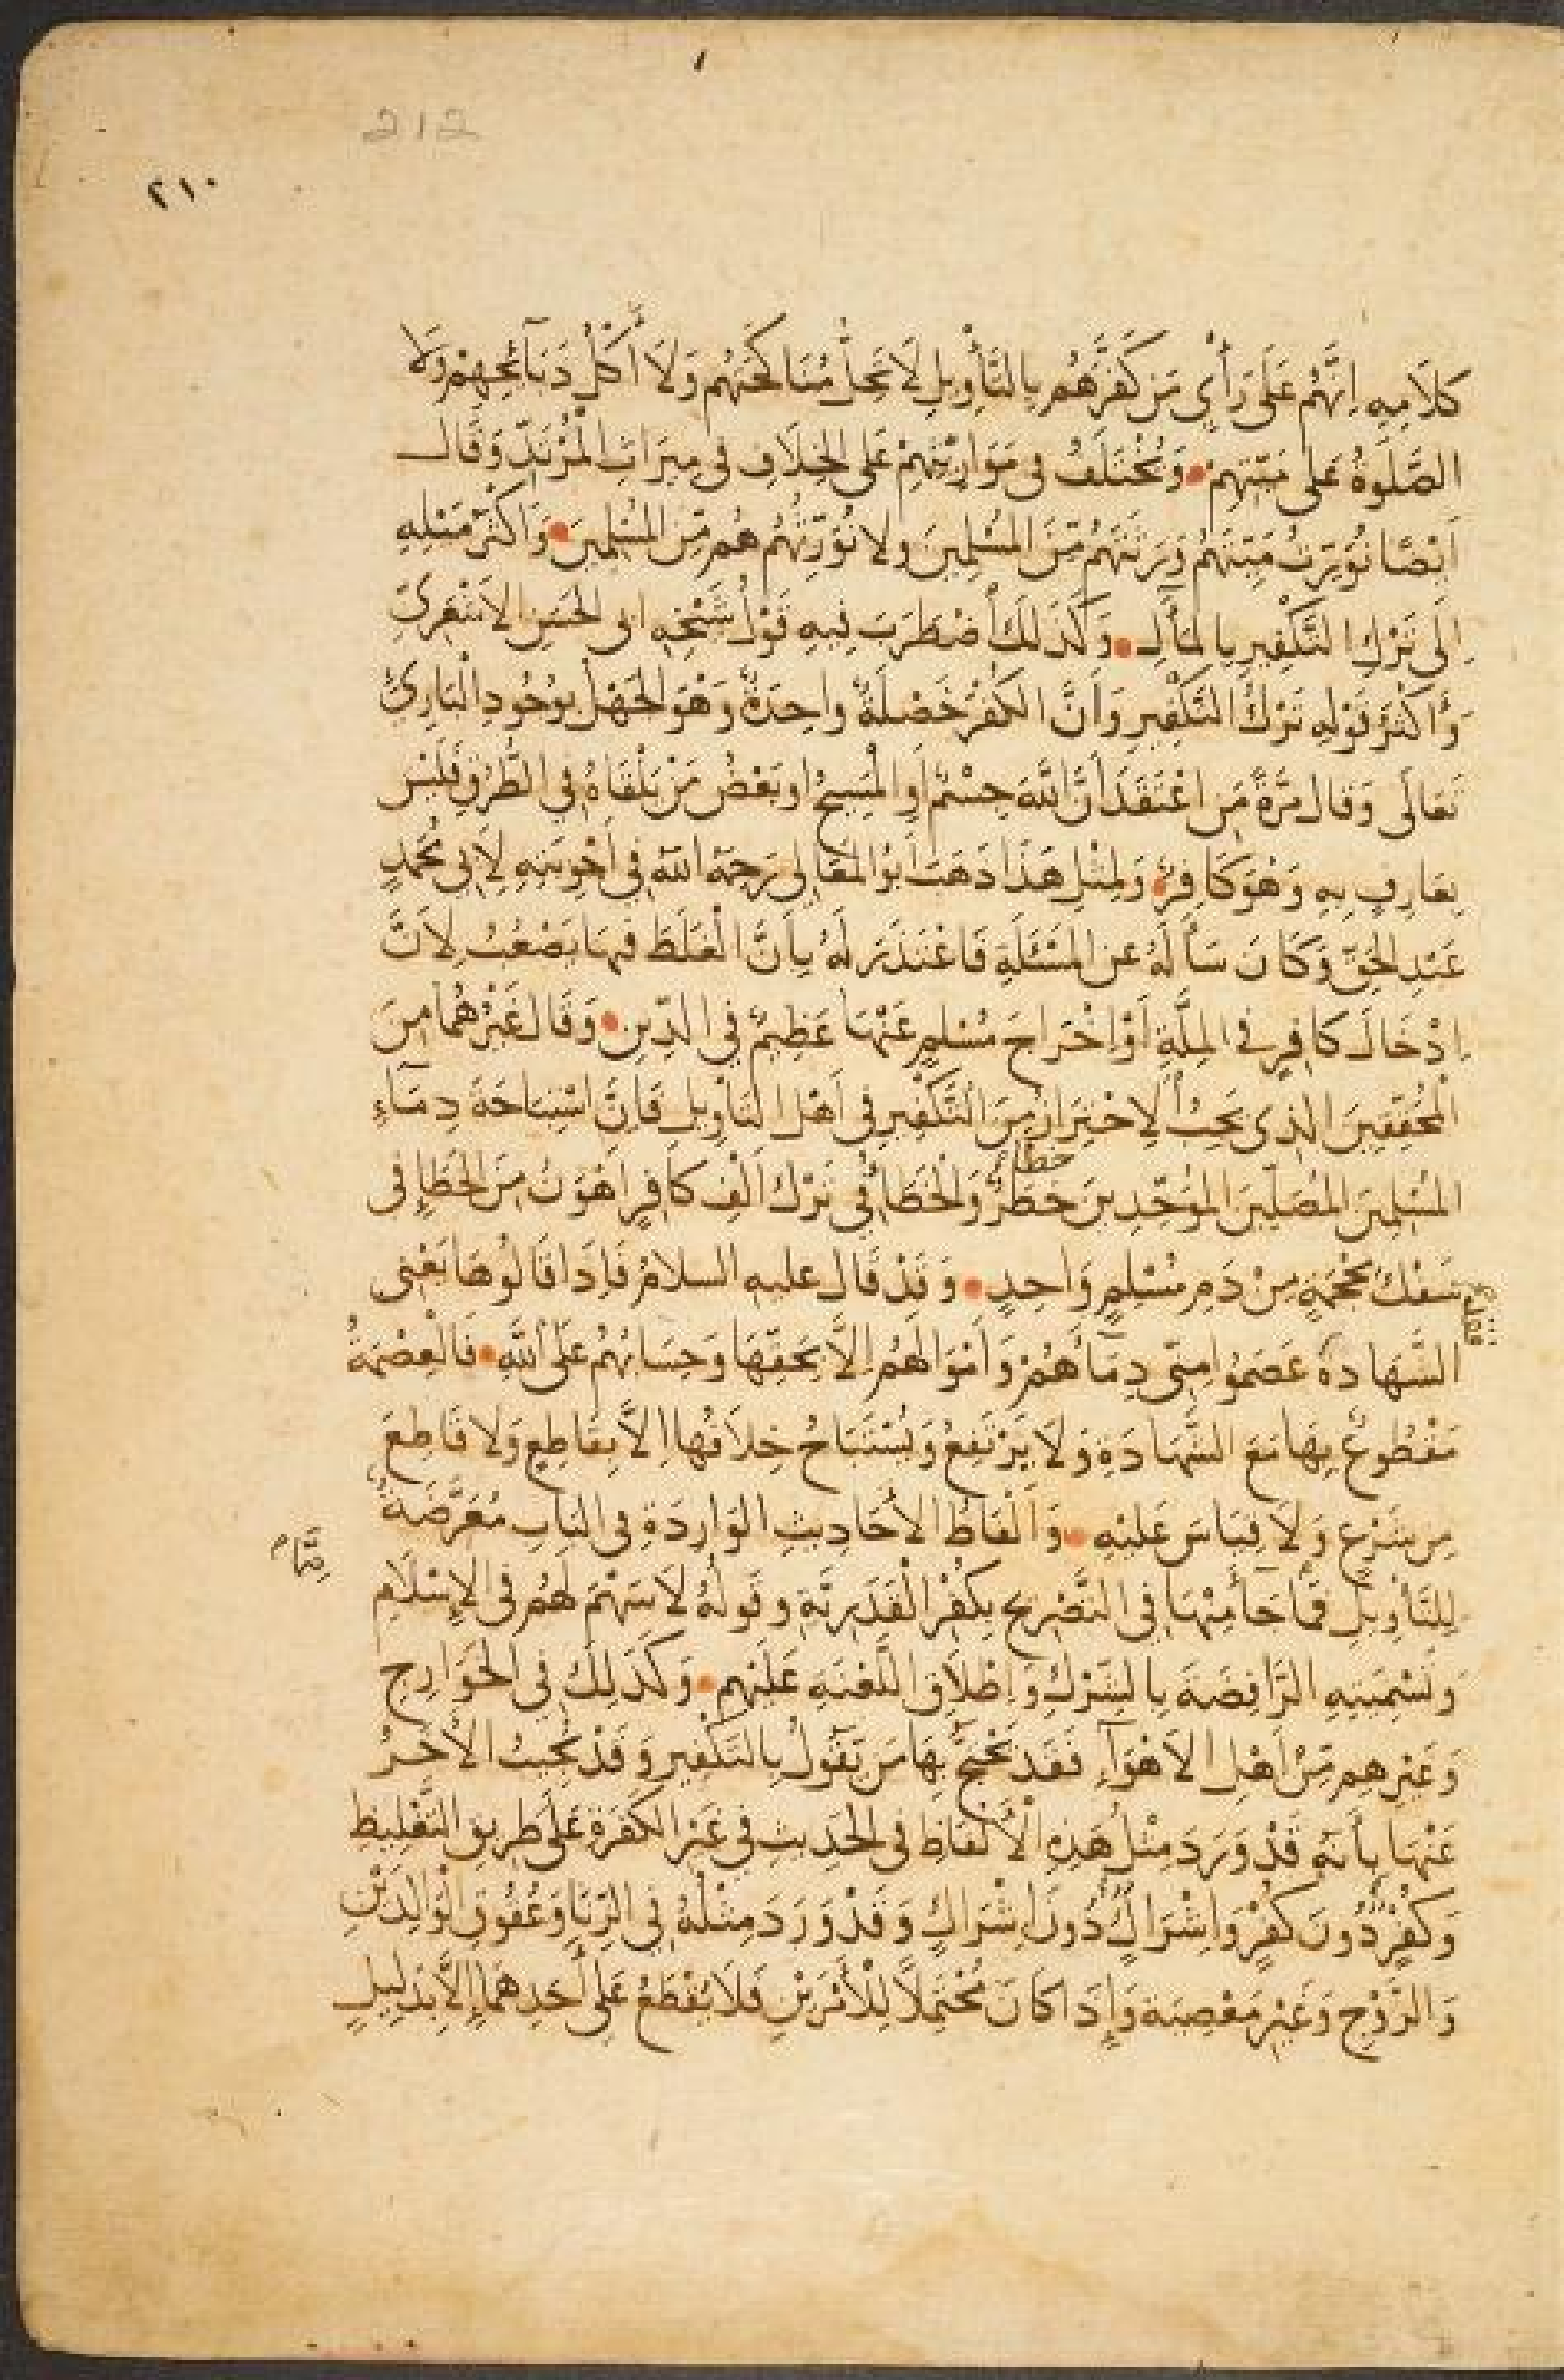 212
٢١٠
كَلَامِهِ اِنَّهُمْ عَلَى رَأْيِ مَن كَفَّرَهُم بِالتَّأْوِيلِ لَا تَحِلُّ مُنَاكَحَتُهُم وَلَا أَكْلُ ذَبَآئِحِهِمْ وَلَا
الصَّلَوةُ عَلَى مَيِّتِهِمْ وَيُخْتَلَفُ فى مَوَارِيْثِهِمْ عَلى الخِلَافِ فى مِيرَاثِ الْمُرْتَدِّ وَقَال
اَيْضًا نُوَرِّثُ مَيِّتَهُم وَرَثَتَهُم مِّنَ المُسْلِمِينَ ولا نُوَرِّثُهُم هُم مِّنَ المُسْلِمِينَ وَاَكْثَرُ مَيْلِهِ
اِلَى تَرْكِ التَّكْفِيرِ بِالمَآلِ وَكَذَلِكَ أضْطَرَبَ فِيهِ قَوْلُ شَيْخِهِ ابى الحَسَنِ الاَشْعَرِىِّ
وَأَكْثَرُ قَوْلِهِ تَرْكُ التَّكْفِيرِ وَأَنَّ الكُفْرَ خَصْلَةٌ واحِدَةٌ وَهْوَ الجَهْلُ بوُجُودِ الْبَارِئِ
تَعَالَى وَقال مَرَّةً مَنِ اعْتَقَدَ أَنَّ اللَّهَ جِسْمٌ أَوِ الْمَسِيحُ او بَعْضُ مَنْ يَلْقَاهُ فى الطُّرُقِ فَلَيْسَ
بِعَارِفٍ بِهِ وَهْوَ كَافِرٌ وَلِمِثْلِ هَذَا ذَهَبَ اَبُو المَعَالِى رَحِمَهُ اللهُ فِى اَجْوِبَتِهِ لِأَبى مُحَمَّدٍ
عَبْدِ الحَقِّ وَكَانَ سَأَلَهُ عن المَسْئَلَةِ فَاعْتَذَرَ لَهُ بِأَنَّ الْغَلَطَ فِيهَا يَصْعُبُ لِأَنَّ
اِدْخَالَ كافِرٍ فى المِلَّةِ أَوْ اِخْرَاجَ مُسْلِمٍ عَنْهَا عَظِيمٌ فى الدِّينِ وَقَال غَيْرُهُما مِنَ
الْمُحَقِّقِينَ الذى يَجِبُ الِاحْتِرَازُ مِنَ التَّكْفِيرِ فى اَهْلِ التَّأْوِيلِ فَاِنَّ اسْتِبَاحَةَ دِمَآءِ
خطأ
المُسْلِمِينَ المُصَلِّينَ المُوَحِّدِينَ خَطَرٌ وَالخَطَأُ فى تَرْكِ اَلْفِ كَافِرٍ اَهْوَنُ مِنَ الخَطَإِ فى
سَفْكِ مِحْجَمَةٍ مِنْ دَمِ مُسْلِمٍ وَاحِدٍ وَقَدْ قَال عليه السلامُ فَاِذَا قَالُوْهَا يَعْنِى
الشَّهَادةَ عَصَمُوا مِنِّى دِمَآءَهُمْ وَأَمْوَالَهُمْ اِلَّا بِحَقِّهَا وَحِسَابُهُمْ عَلَى اللَّهِ فَالْعِصْمَةُ
مَقْطُوعٌ بِهَا مَعَ الشَّهَادَةِ وَلَا يَرْتَفِعُ وَيُسْتَبَاحُ خِلَافُها اِلَّا بِقَاطِعٍ وَلا قَاطِعَ
مِن شَرْعٍ وَلَا قِيَاسَ عَلَيْهِ وَأَلْفَاظُ الأَحَادِيثِ الوَارِدَةِ فى البَابِ مُعَرَّضَةٌ
لِلتَّأْوِيلِ فَمَا جَآءَ مِنْهَا فى التَّصْرِيحِ بِكُفْرِ الْقَدَرِيَّةِ وقَولُهُ لَا سَهْمَ لَهُمْ فى الإِسْلَامِ
وتَسْمِيَتِهِ الرَّافِضَةَ بِالشِّرْكِ وَاِطْلَاقِ اللَّعْنَةِ عَلَيْهِم وَكَذَلِكَ فى الخَوَارِجِ
وَغَيْرِهِم مِّنْ اَهْلِ الاَهْوَآءِ فَقَد يَحْتَجُّ بِهَا مَن يَقُولُ بِالتَّكْفِيرِ وَقَدْ يُجِيبُ الآخَرُ
عَنْهَا بِأَنَّهُ قَدْ وَرَدَ مِثْلُ هَذِهِ الْأَلْفَاظِ فى الحَدِيثِ فى غَيْرِ الكَفَرَةِ عَلَى طَرِيقِ التَّغْلِيظِ
وَكُفْرٌ دُونَ كُفْرٍ وَاِشْرَاكٌ دُونَ اِشْرَاكٍ وَقَدْ وَرَدَ مِثْلُهُ فى الرِّيَا وَعُقُوقِ الْوَالِدَيْنِ
وَالزَّوْجِ وَغَيْرِ مَعْصِيَةٍ وَإِذَا كَانَ مُحْتَمِلًا لِلْأَمْرَيْنِ فَلَا يُقْطَعُ عَلَى أَحَدِهِمَا إِلَّا بِدَلِيلٍ